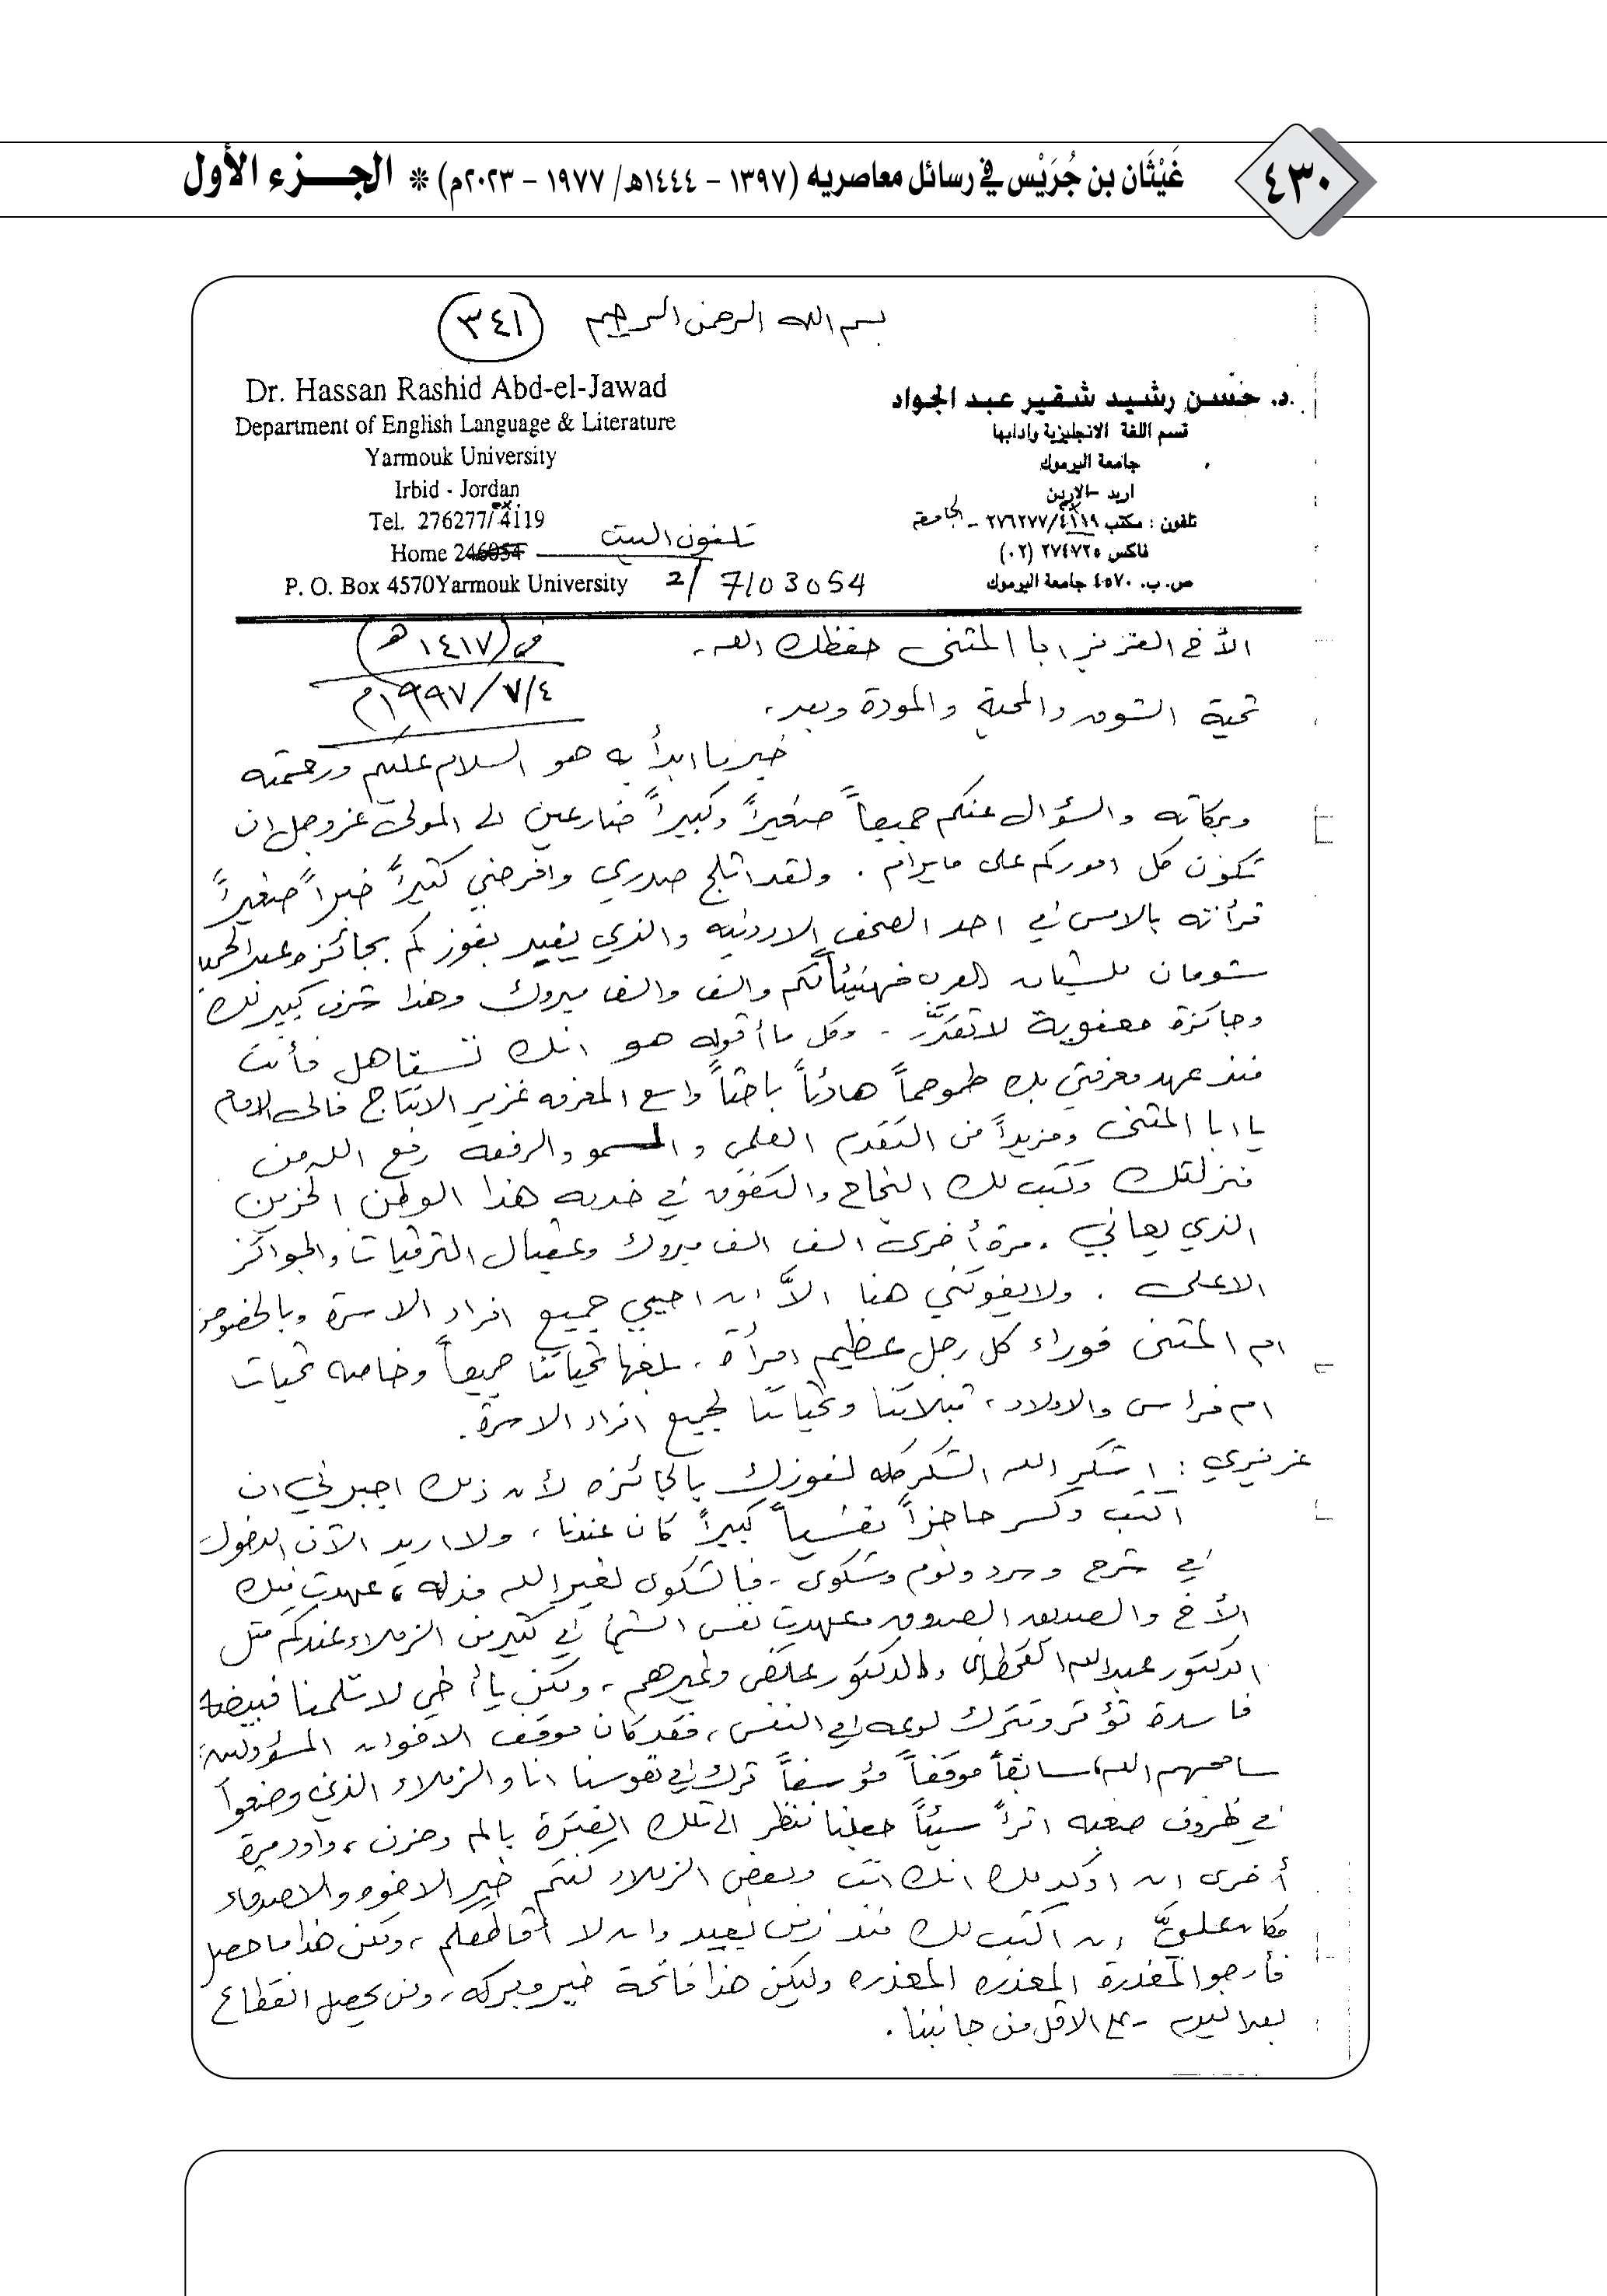 ٤٣٠
غَيْثَان بن جُرَيْس في رسائل معاصريه (١٣٩٧ - ١٤٤٤هـ/ ١٩٧٧ - ٢٠٢٣م) * الجـــزء الأول
بسم الله الرحمن الرحيم
(٣٤١)
Dr. Hassan Rashid Abd-el-Jawad
Department of English Language & Literature
Yarmouk University
Irbid - Jordan
Tel. 276277/4119
Home 246054
P. O. Box 4570 Yarmouk University
د. حسن رشيد شقير عبد الجواد
قسم اللغة الانجليزية وادابها
جامعة اليرموك
اربد - الاردن
تلفون : مكتب ٢٧٦٢٧٧/٤١١٩ - الجامعة
فاكس ٢٧٤٧٢٥ (٠٢)
ص.ب. ٤٥٧٠ جامعة اليرموك
تلفون البيت
2/ 7103054
الأخ العزيز ابا المثنى حفظك الله.
(١٤١٧هـ)
١٩٩٧/٧/٤م
تحية الشوق والمحبة والمودة وبعد،
خير ما ابدأ به هو السلام عليكم ورحمته
وبركاته والسؤال عنكم جميعاً صغيراً وكبيراً ضارعين الى المولى عز وجل ان
تكون كل اموركم على مايرام . ولقد اثلج صدري وافرحني كثيراً خبراً صغيراً
قرأته بالامس في احد الصحف الاردنيه والذي يفيد بفوزكم بجائزه عبد الحميد
شومان للشباب العرب فهنيئاً لكم والف والف مبروك وهذا شرف كبير لك
وجائزة معنوية لا تقدَّر . وكل ما أقوله هو انك تستاهل فأنت
منذ عهد معرفتي بك طموحاً هادئاً باحثاً واسع المعرفه غزير الانتاج فالى الامام
يا ابا المثنى ومزيداً من التقدم العلمي و السمو والرفعه رفع الله من
منزلتك وكتب لك النجاح والتفوق في خدمه هذا الوطن الحزين
الذي يعاني . مرة أخرى الف الف مبروك وعقبال الترقيات والجوائز
الاعلى . ولا يفوتني هنا الاَّ ان احيي جميع افراد الاسرة وبالخصوص
ام المثنى فوراء كل رجل عظيم امرأة ، بلغها تحياتنا جميعاً وخاصه تحيات
ام فراس والاولاد ، قبلاتنا وتحياتنا لجميع افراد الاسرة .
عزيزي : اشكر الله الشكر كله لفوزك بالجائزه لأن ذلك اجبرني ان
اكتب وكسر حاجزاً نفسياً كبيراً كان عندنا ، ولا اريد الآن الدخول
في شرح وسرد ولوم وشكوى . فالشكوى لغير الله مذله ، عهدت فيك
الأخ والصديق الصدوق وعهدت نفس الشئ في كثير من الزملاء عندكم مثل
الدكتور عبد الله القحطاني والدكتور وغيرهم ، ولكن يا أخي لا تلمنا فبيضه
فاسدة تؤثر وتترك لوعه في النفس ، فقد كان موقف الاخوان المسؤولين
سامحهم الله سابقاً موقفاً مؤسفاً ترك في نفوسنا انا والزملاء الذين وضعوا
في ظروف صعبه اثراً سيئاً جعلنا ننظر الى تلك الفترة بالم وحزن ، واود مرة
أخرى ان اؤكد لك انك انت وبعض الزملاء كنتم خير الاخوه والاصدقاء
فكان عليَّ ان اكتب لك منذ زمن بعيد وان لا اقاطعكم ، ولكن هذا ما حصل
فأرجو المعذرة المعذره المعذره وليكن هذا فاتحة خير وبركه ، ولن يحصل انقطاع
بعد اليوم - على الاقل من جانبنا .